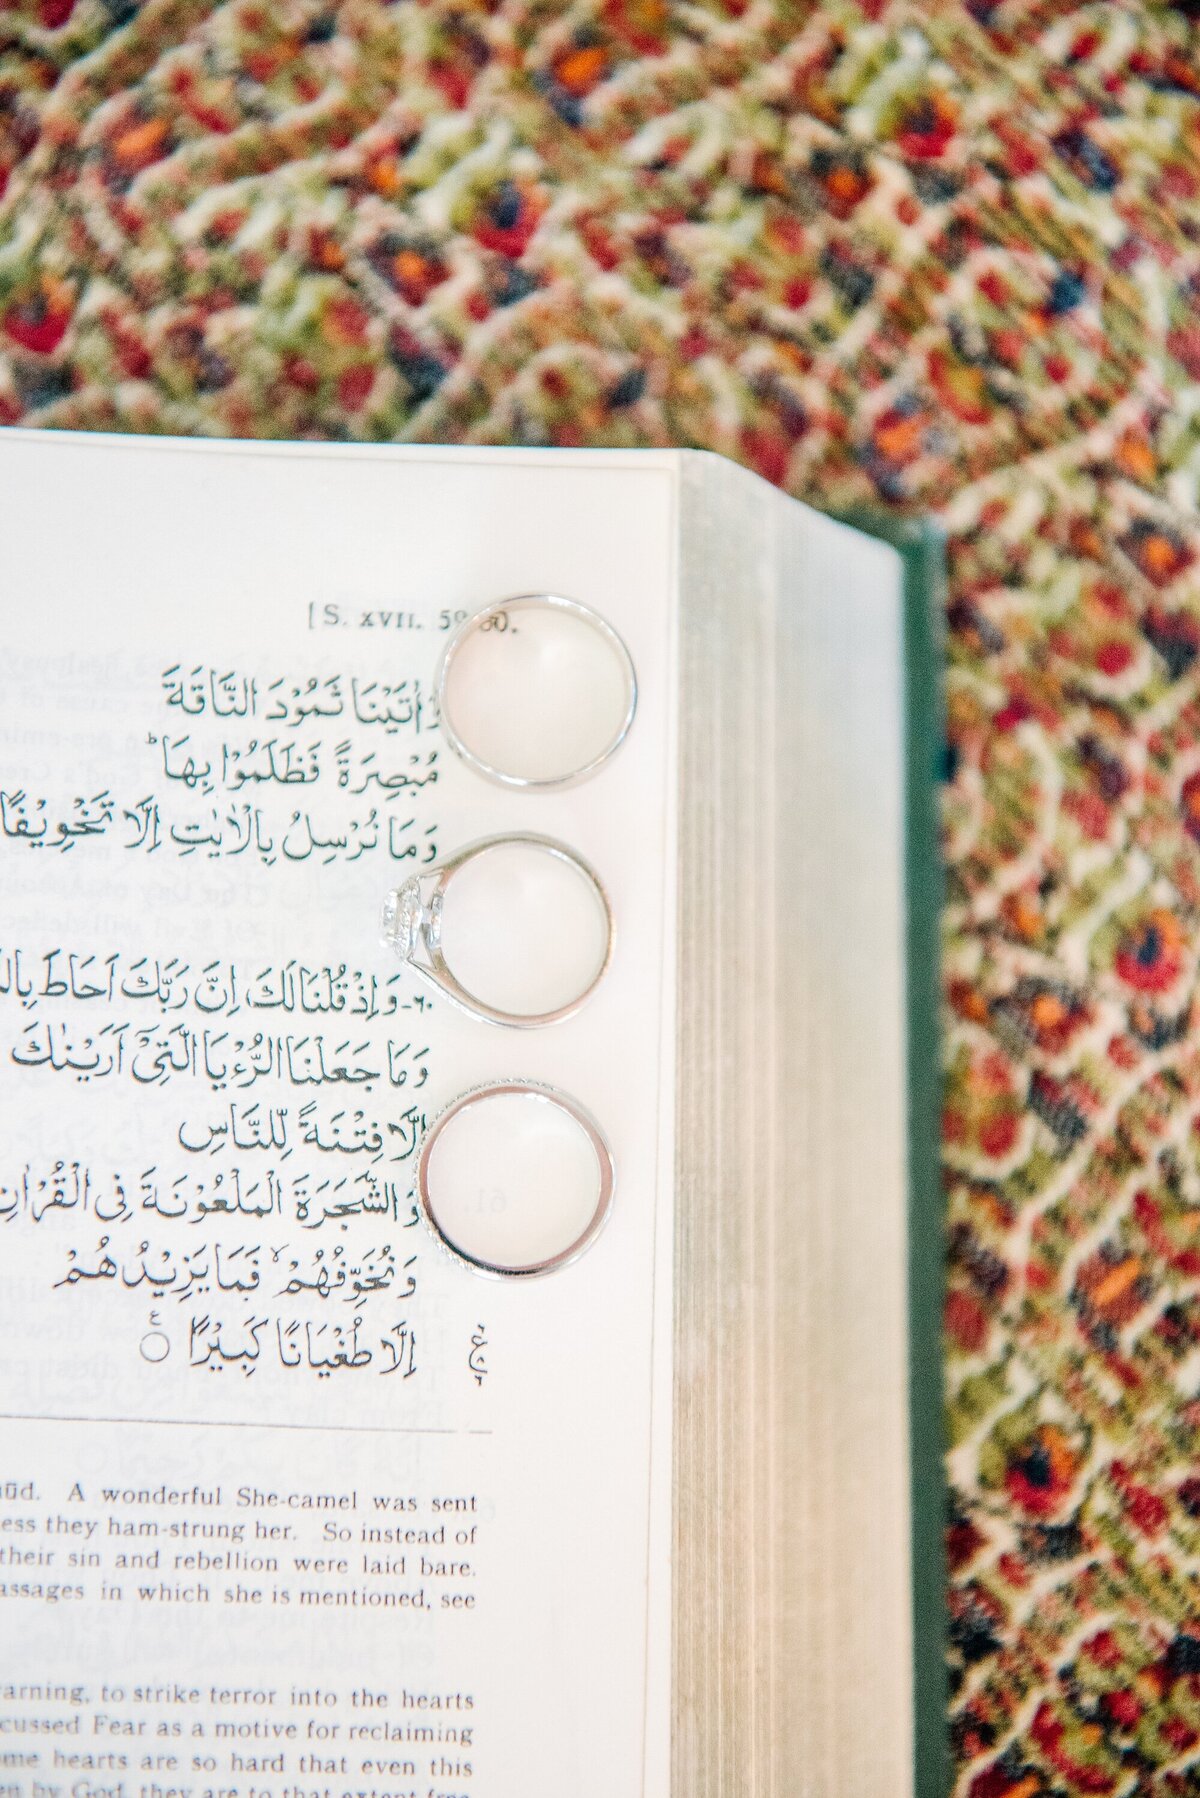 [S. XVII. 59-60.
وَاٰتَيْنَا ثَمُوْدَ النَّاقَةَ
مُبْصِرَةً فَظَلَمُوْا بِهَا ؕ
وَمَا نُرْسِلُ بِالْاٰيٰتِ اِلَّا تَخْوِيْفًا
٦٠- وَاِذْ قُلْنَا لَكَ اِنَّ رَبَّكَ اَحَاطَ
وَمَا جَعَلْنَا الرُّءْيَا الَّتِيْۤ اَرَيْنٰكَ
اِلَّا فِتْنَةً لِّلنَّاسِ
وَالشَّجَرَةَ الْمَلْعُوْنَةَ فِى الْقُرْاٰنِ
وَنُخَوِّفُهُمْ ۙ فَمَا يَزِيْدُهُمْ
اِلَّا طُغْيَانًا كَبِيْرًا ۠
A wonderful She-camel was sent
they ham-strung her. So instead of
their sin and rebellion were laid bare.
in which she is mentioned, see
to strike terror into the hearts
Fear as a motive for reclaiming
hearts are so hard that even this
by God, they are to that extent